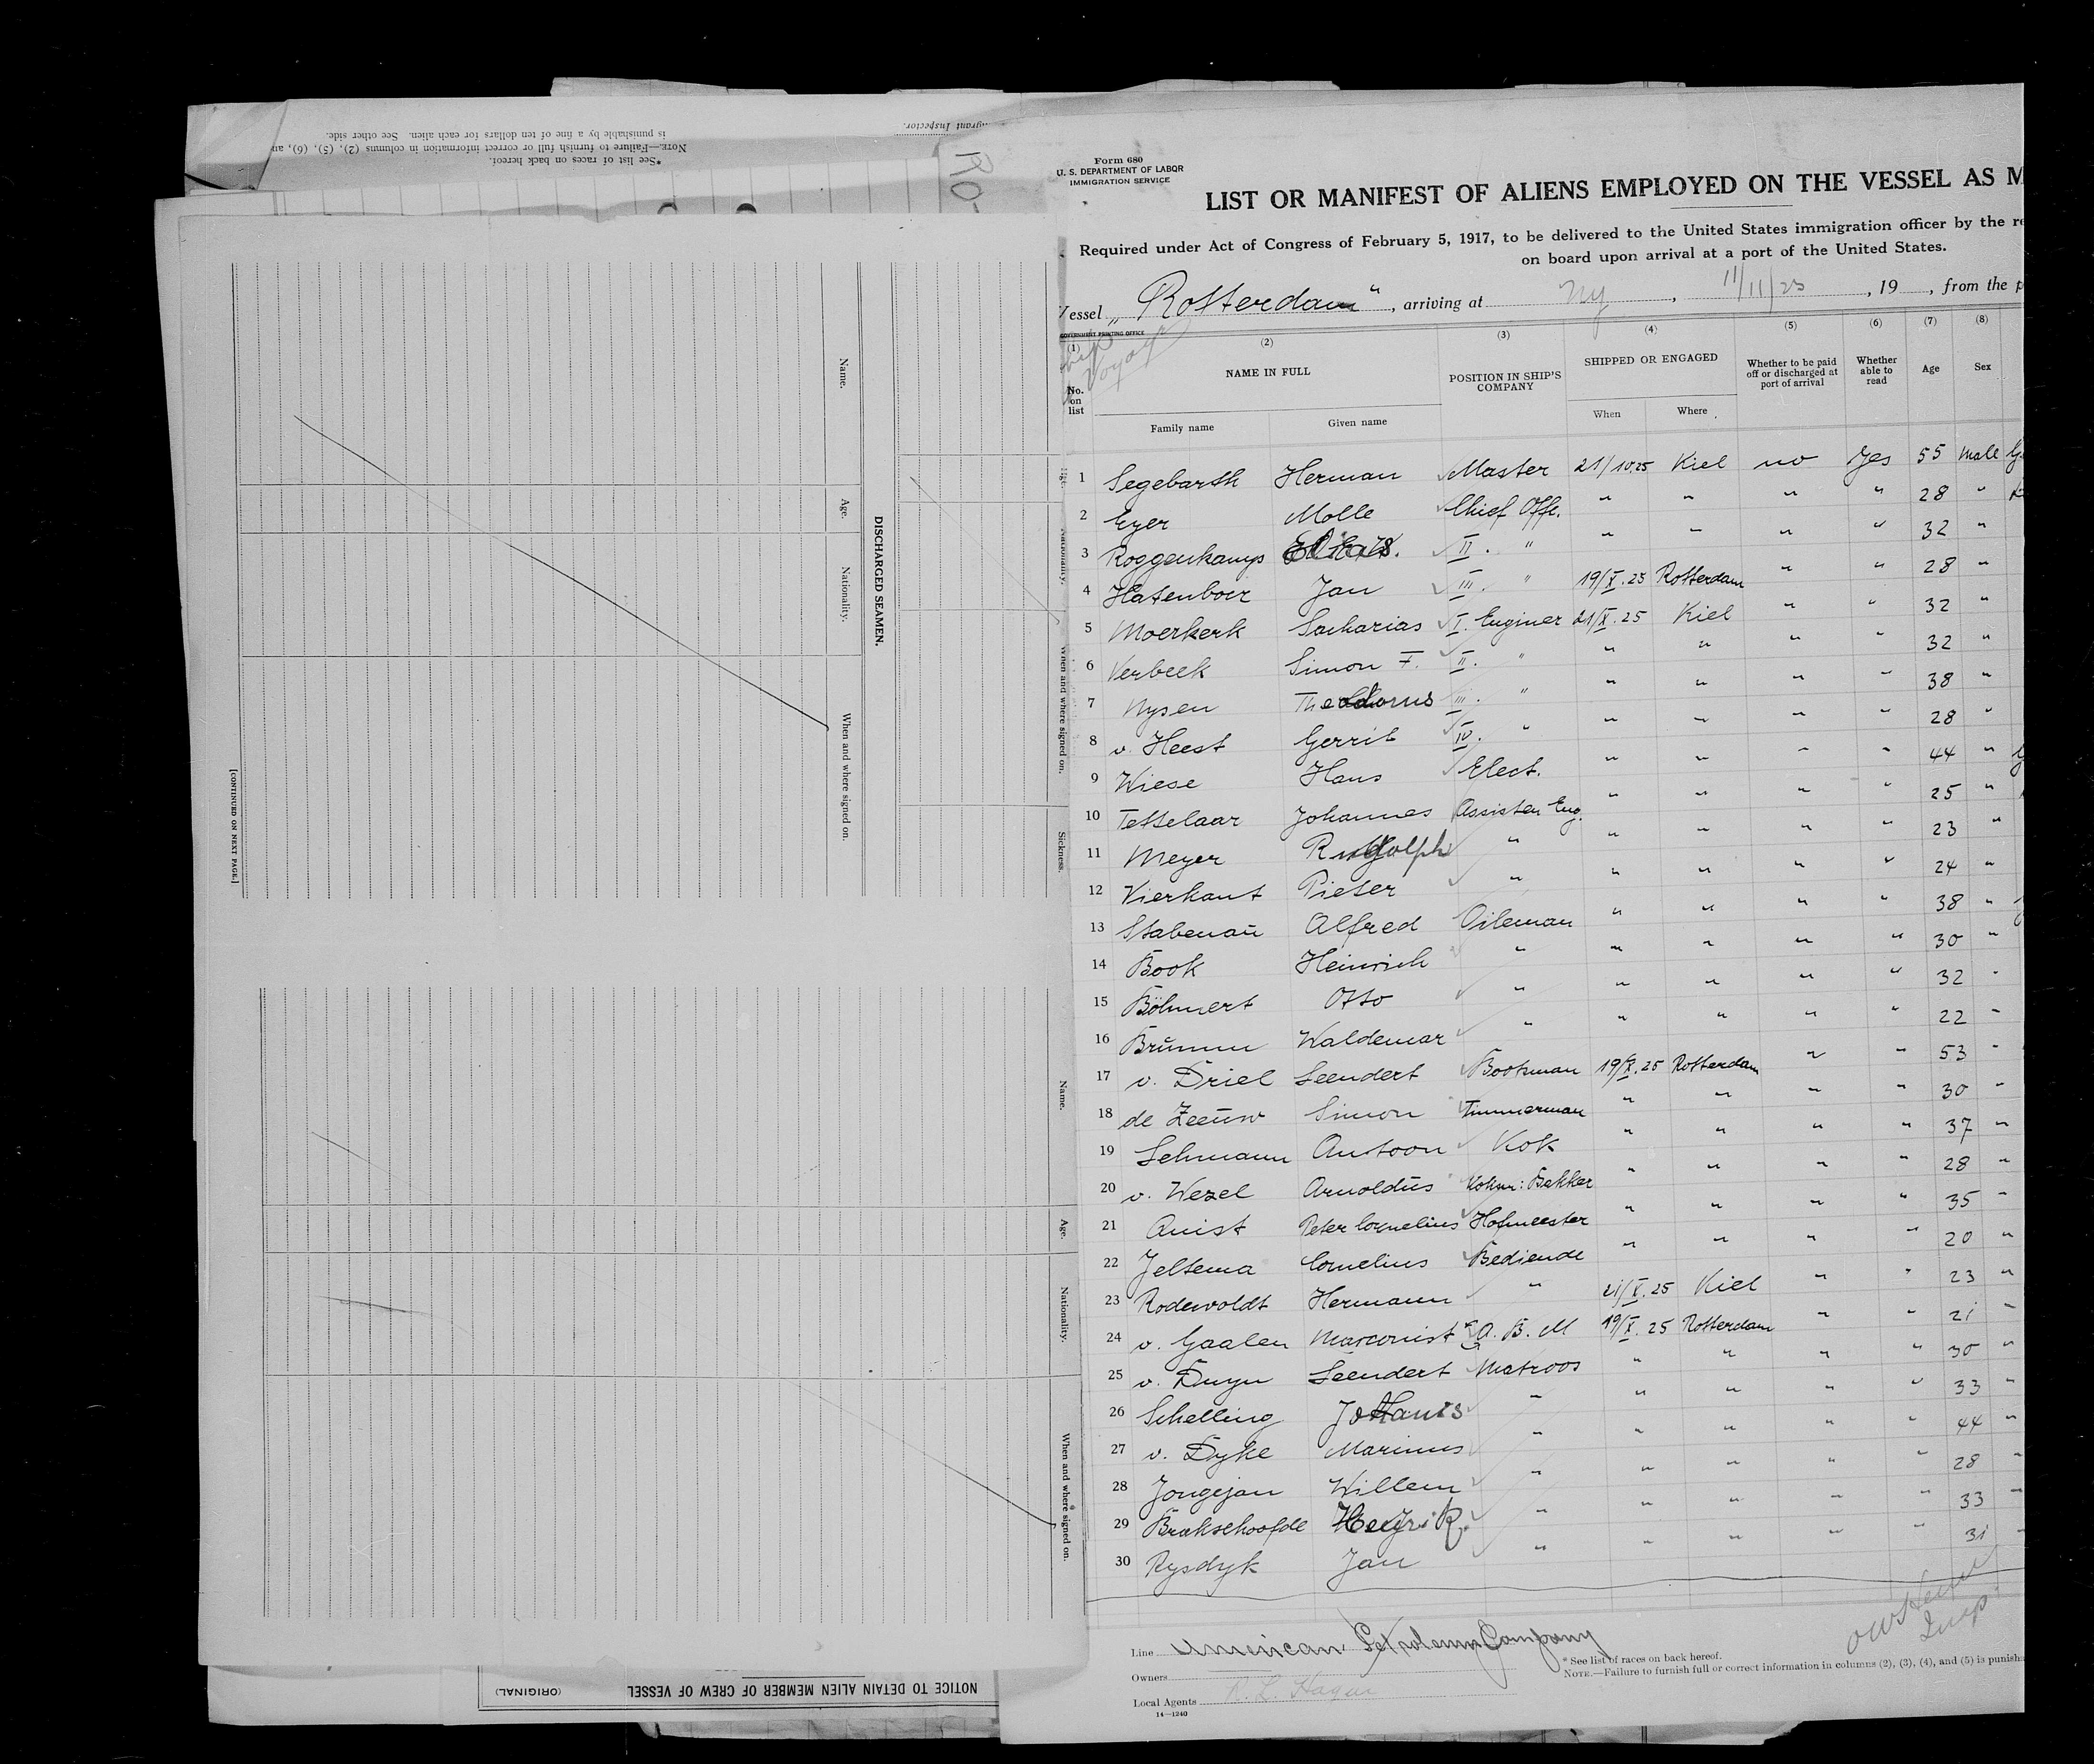 is punishable by a fine of ten dollars for each alien. See other side.
NOTE.—Failure to furnish full or correct information in columns (2), (5), (6), an
*See list of races on back hereof.
migrant Inspector.
RO-
Name.
Age.
Nationality.
When and where signed on.
DISCHARGED SEAMEN.
[CONTINUED ON NEXT PAGE.]
Nationality.
When and where signed on.
Sickness.
Name.
Age.
Nationality.
When and where signed on.
NOTICE TO DETAIN ALIEN MEMBER OF CREW OF VESSEL
(ORIGINAL)
Form 680
U. S. DEPARTMENT OF LABOR
IMMIGRATION SERVICE
LIST OR MANIFEST OF ALIENS EMPLOYED ON THE VESSEL AS M
Required under Act of Congress of February 5, 1917, to be delivered to the United States immigration officer by the re
on board upon arrival at a port of the United States.
Vessel „Rotterdam", arriving at Ny, 11/11/25, 19 , from the p
GOVERNMENT PRINTING OFFICE
Voyage
(1) (2) (3) (4) (5) (6) (7) (8)
No. on list NAME IN FULL POSITION IN SHIP'S COMPANY SHIPPED OR ENGAGED Whether to be paid off or discharged at port of arrival Whether able to read Age Sex
Family name Given name When Where
1 Segebarth Herman Master 21/10.25 Kiel no Yes 55 Male
2 Eyer Molle Chief Off. " " " " 28 "
3 Roggenkamp II. " " " " " 32 "
4 Hatenboer Jan III. " 19/X.25 Rotterdam " " 28 "
5 Moerkerk Sacharias I. Enginer 21/X.25 Kiel " " 32 "
6 Verbeek Simon F. II. " " " " " 32 "
7 Nysen Theodorus III. " " " " " 38 "
8 v. Heest Gerrit IV. " " " " " 28 "
9 Wiese Hans Elect. " " " " 44 "
10 Tettelaar Johannes Assisten Eng. " " " " 25 "
11 Meyer Rudolph " " " " " 23 "
12 Vierkant Pieter " " " " " 24 "
13 Stabenaŭ Alfred Oileman " " " " 38 "
14 Book Heinrich " " " " " 30 "
15 Böhmert Otto " " " " " 32 "
16 Brŭmm Waldemar " " " " " 22 "
17 v. Driel Leendert Bootsman 19/X.25 Rotterdam " " 53 "
18 de Zeeŭw Simon Timmerman " " " " 30 "
19 Lehmann Antoon Kok " " " " 37 "
20 v. Wezel Arnoldŭs Bakker " " " " 28 "
21 Quist Peter Cornelius Hofmeester " " " " 35 "
22 Jeltema Cornelius Bediende " " " " 20 "
23 Rodewoldt Hermann " 21/X.25 Kiel " " 23 "
24 v. Gaalen Marconist A. B. M 19/X.25 Rotterdam " " 21 "
25 v. Duyn Leendert Matroos " " " " 30 "
26 Schelling Johanis " " " " " 33 "
27 v. Dyke Marinus " " " " " 44 "
28 Jongejan Willem " " " " " 28 "
29 Hendrik " " " " " 33 "
30 Rysdyk Jan " " " " " 31 "
Line American Petroleum Company
Owners
Local Agents
14—1240
* See list of races on back hereof.
NOTE.—Failure to furnish full or correct information in columns (2), (3), (4), and (5) is punisha
Insp.